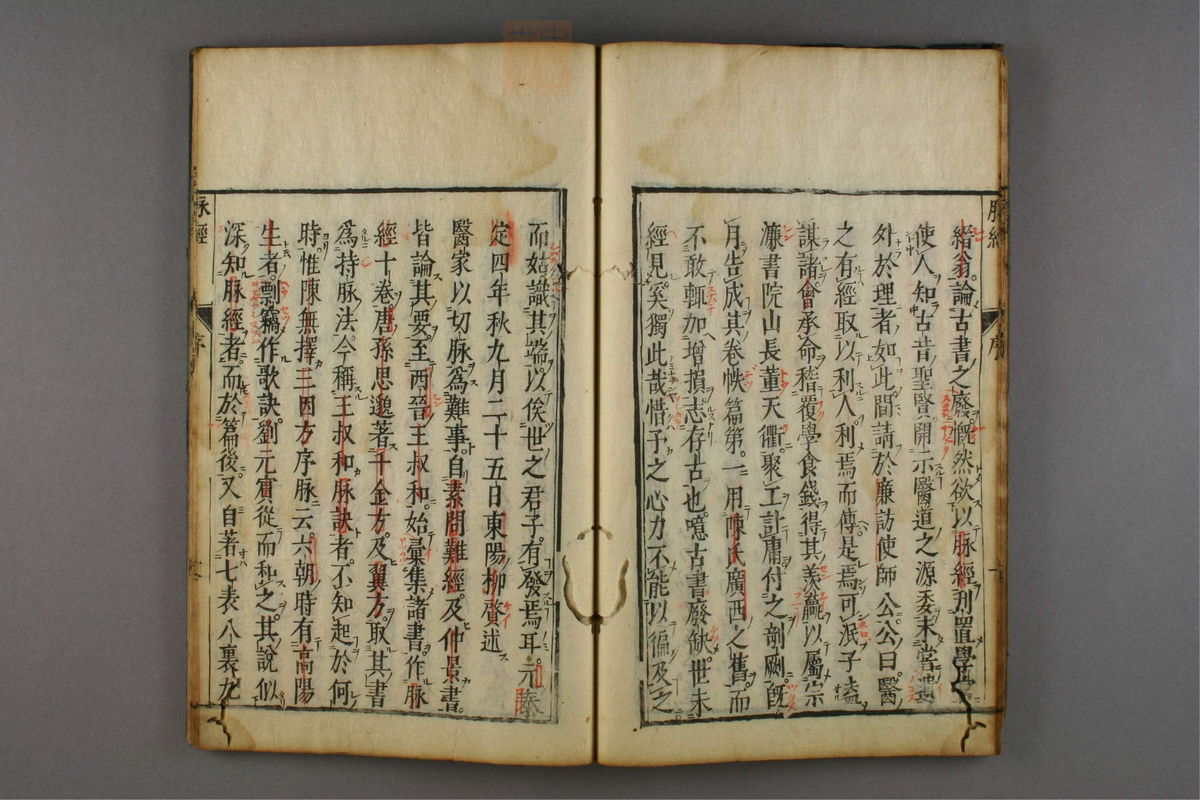 縉翁論古書之廢慨然欲以脉經刋置學
使人知古昔聖醫開示醫道之源委未嘗遺
外於理者如此間請於廉訪使師公公曰醫
之有經取以利人利焉而傳是焉可泯子盍
謀諸會承命稽覆學食錢得其羨贏以屬宗
濂書院山長董天衢聚工計庸付之剞劂旣
月告成其卷帙篇第一用陳氏廣西之舊而
不敢輒加增損志存古也噫古書廢缺世未
經見奚獨此哉惜予之心力不能以徧及之
而姑識其端以俟世之君子有發焉耳元
定四年秋九月二十五日東陽柳贇述
醫家以切脉爲難事自素問難經及仲景書
皆論其要至西晉王叔和始彙集諸書作脉
經十卷唐孫思邈著千金方及翼方取其書
爲持脉法今稱王叔和脉訣者不知起於何
時惟陳無擇三因方序脉云六朝時有高陽
生者剽竊作歌訣劉元賓從而和之其說似
深知脉經者而於篇後又自著七表八裏九
脉經
序